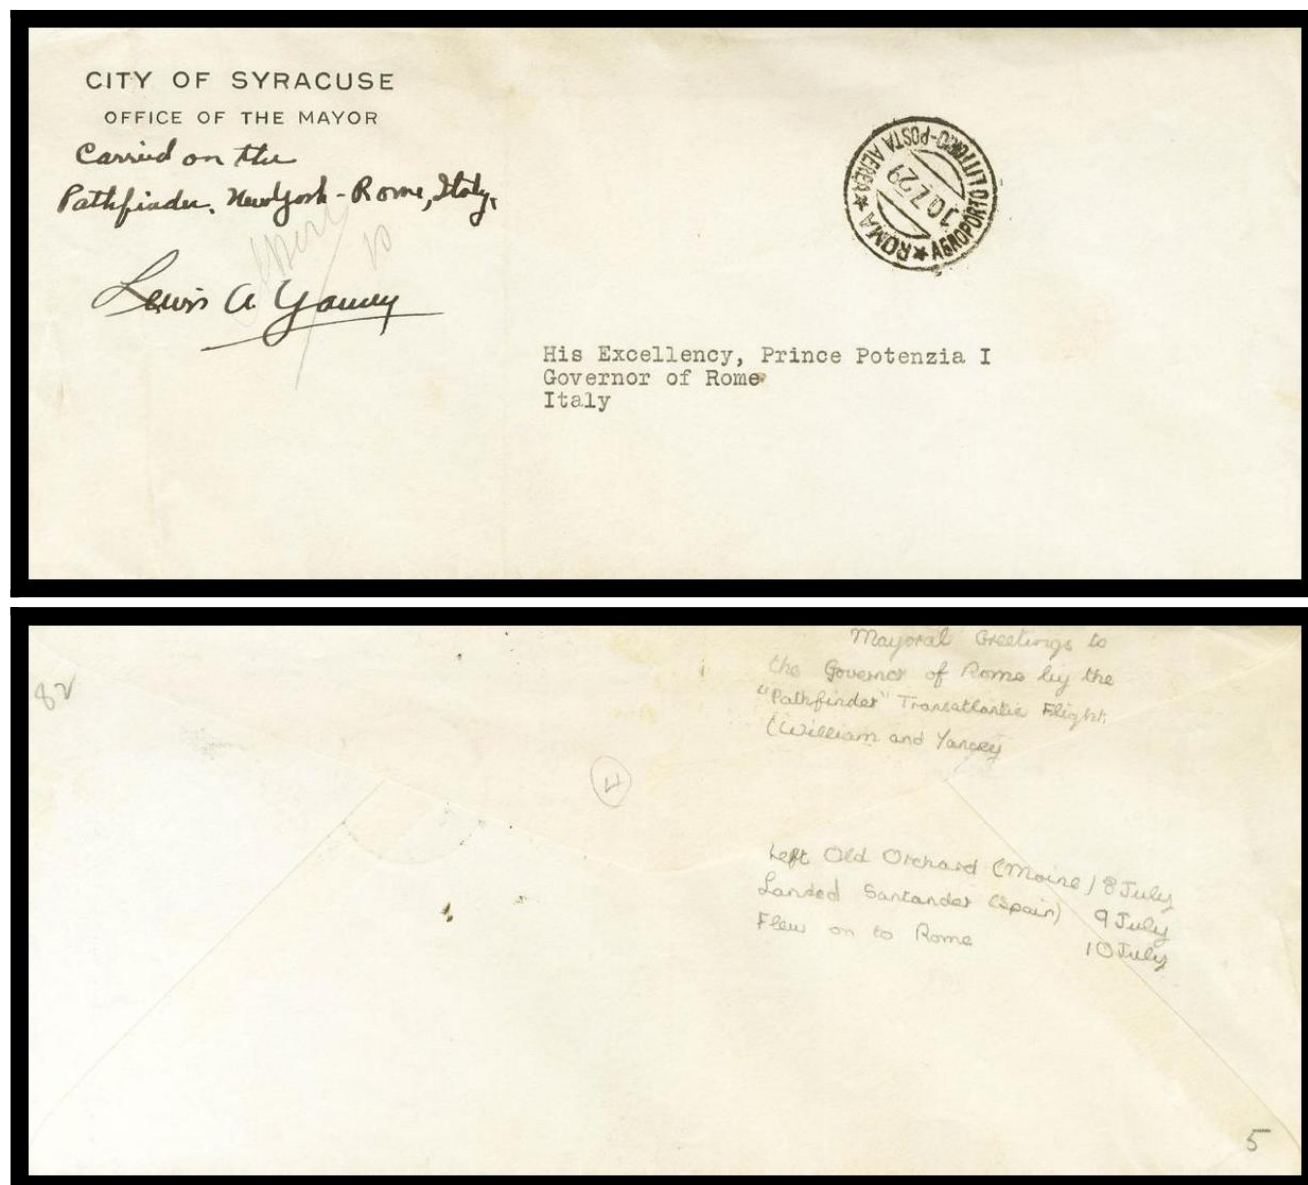 CITY OF SYRACUSE
OFFICE OF THE MAYOR
Carried on the
Pathfinder. New York - Rome, Italy.
Lewis A Yancey
10
ROMA ★ AEROPORTO LITTORIO-POSTA AEREA ★
10.7.29
His Excellency, Prince Potenzia I
Governor of Rome
Italy
82
Mayoral Greetings to
the Governor of Rome by the
"Pathfinder" Transatlantic Flight.
(William and Yancey
4
Left Old Orchard (Maine) 8 July
Landed Santander (Spain) 9 July
Flew on to Rome 10 July
5